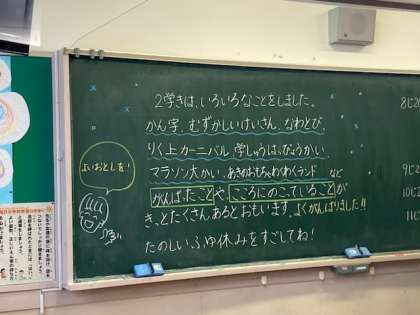 2学きは、いろいろなことをしました。
かん字、むずかしいけいさん、なわとび、
りく上カーニバル、学しゅうはっぴょうかい、
マラソン大かい、あきのおもちゃわくわくランド など
がんばったことや、こころにのこっていることが
きっとたくさんあるとおもいます。よくがんばりました!!
たのしいふゆ休みをすごしてね!
よいおとしを!
8じ20
9じ
10じ
11じ